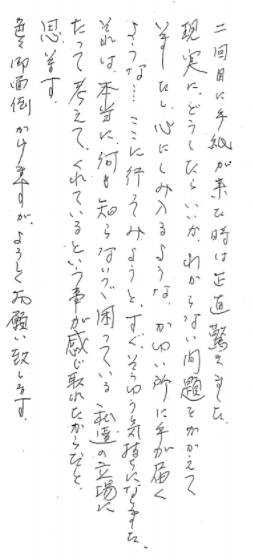 二回目に手紙が来た時は正直驚きました。
現実に、どうしたらいいか、わからない問題をかかえて
いますし、心にしみ入るような、かゆい所に手が届く
ような…ここに行ってみようと、すぐ、そういう気持ちになりました。
それは、本当に、何も知らないで困っている私達の立場に
たって考えて、くれているという事が感じ取れたからだと
思います。
色々御面倒かけますが、ようしくお願い致します。